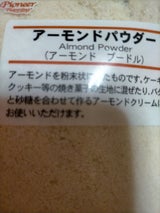 Pioneer
アーモンドパウダー
Almond Powder
(アーモンド プードル)
アーモンドを粉末状にしたものです。ケーキ
クッキー等の焼き菓子の生地に混ぜたり、バ
と砂糖を合わせて作るアーモンドクリームに
お使いいただけます。